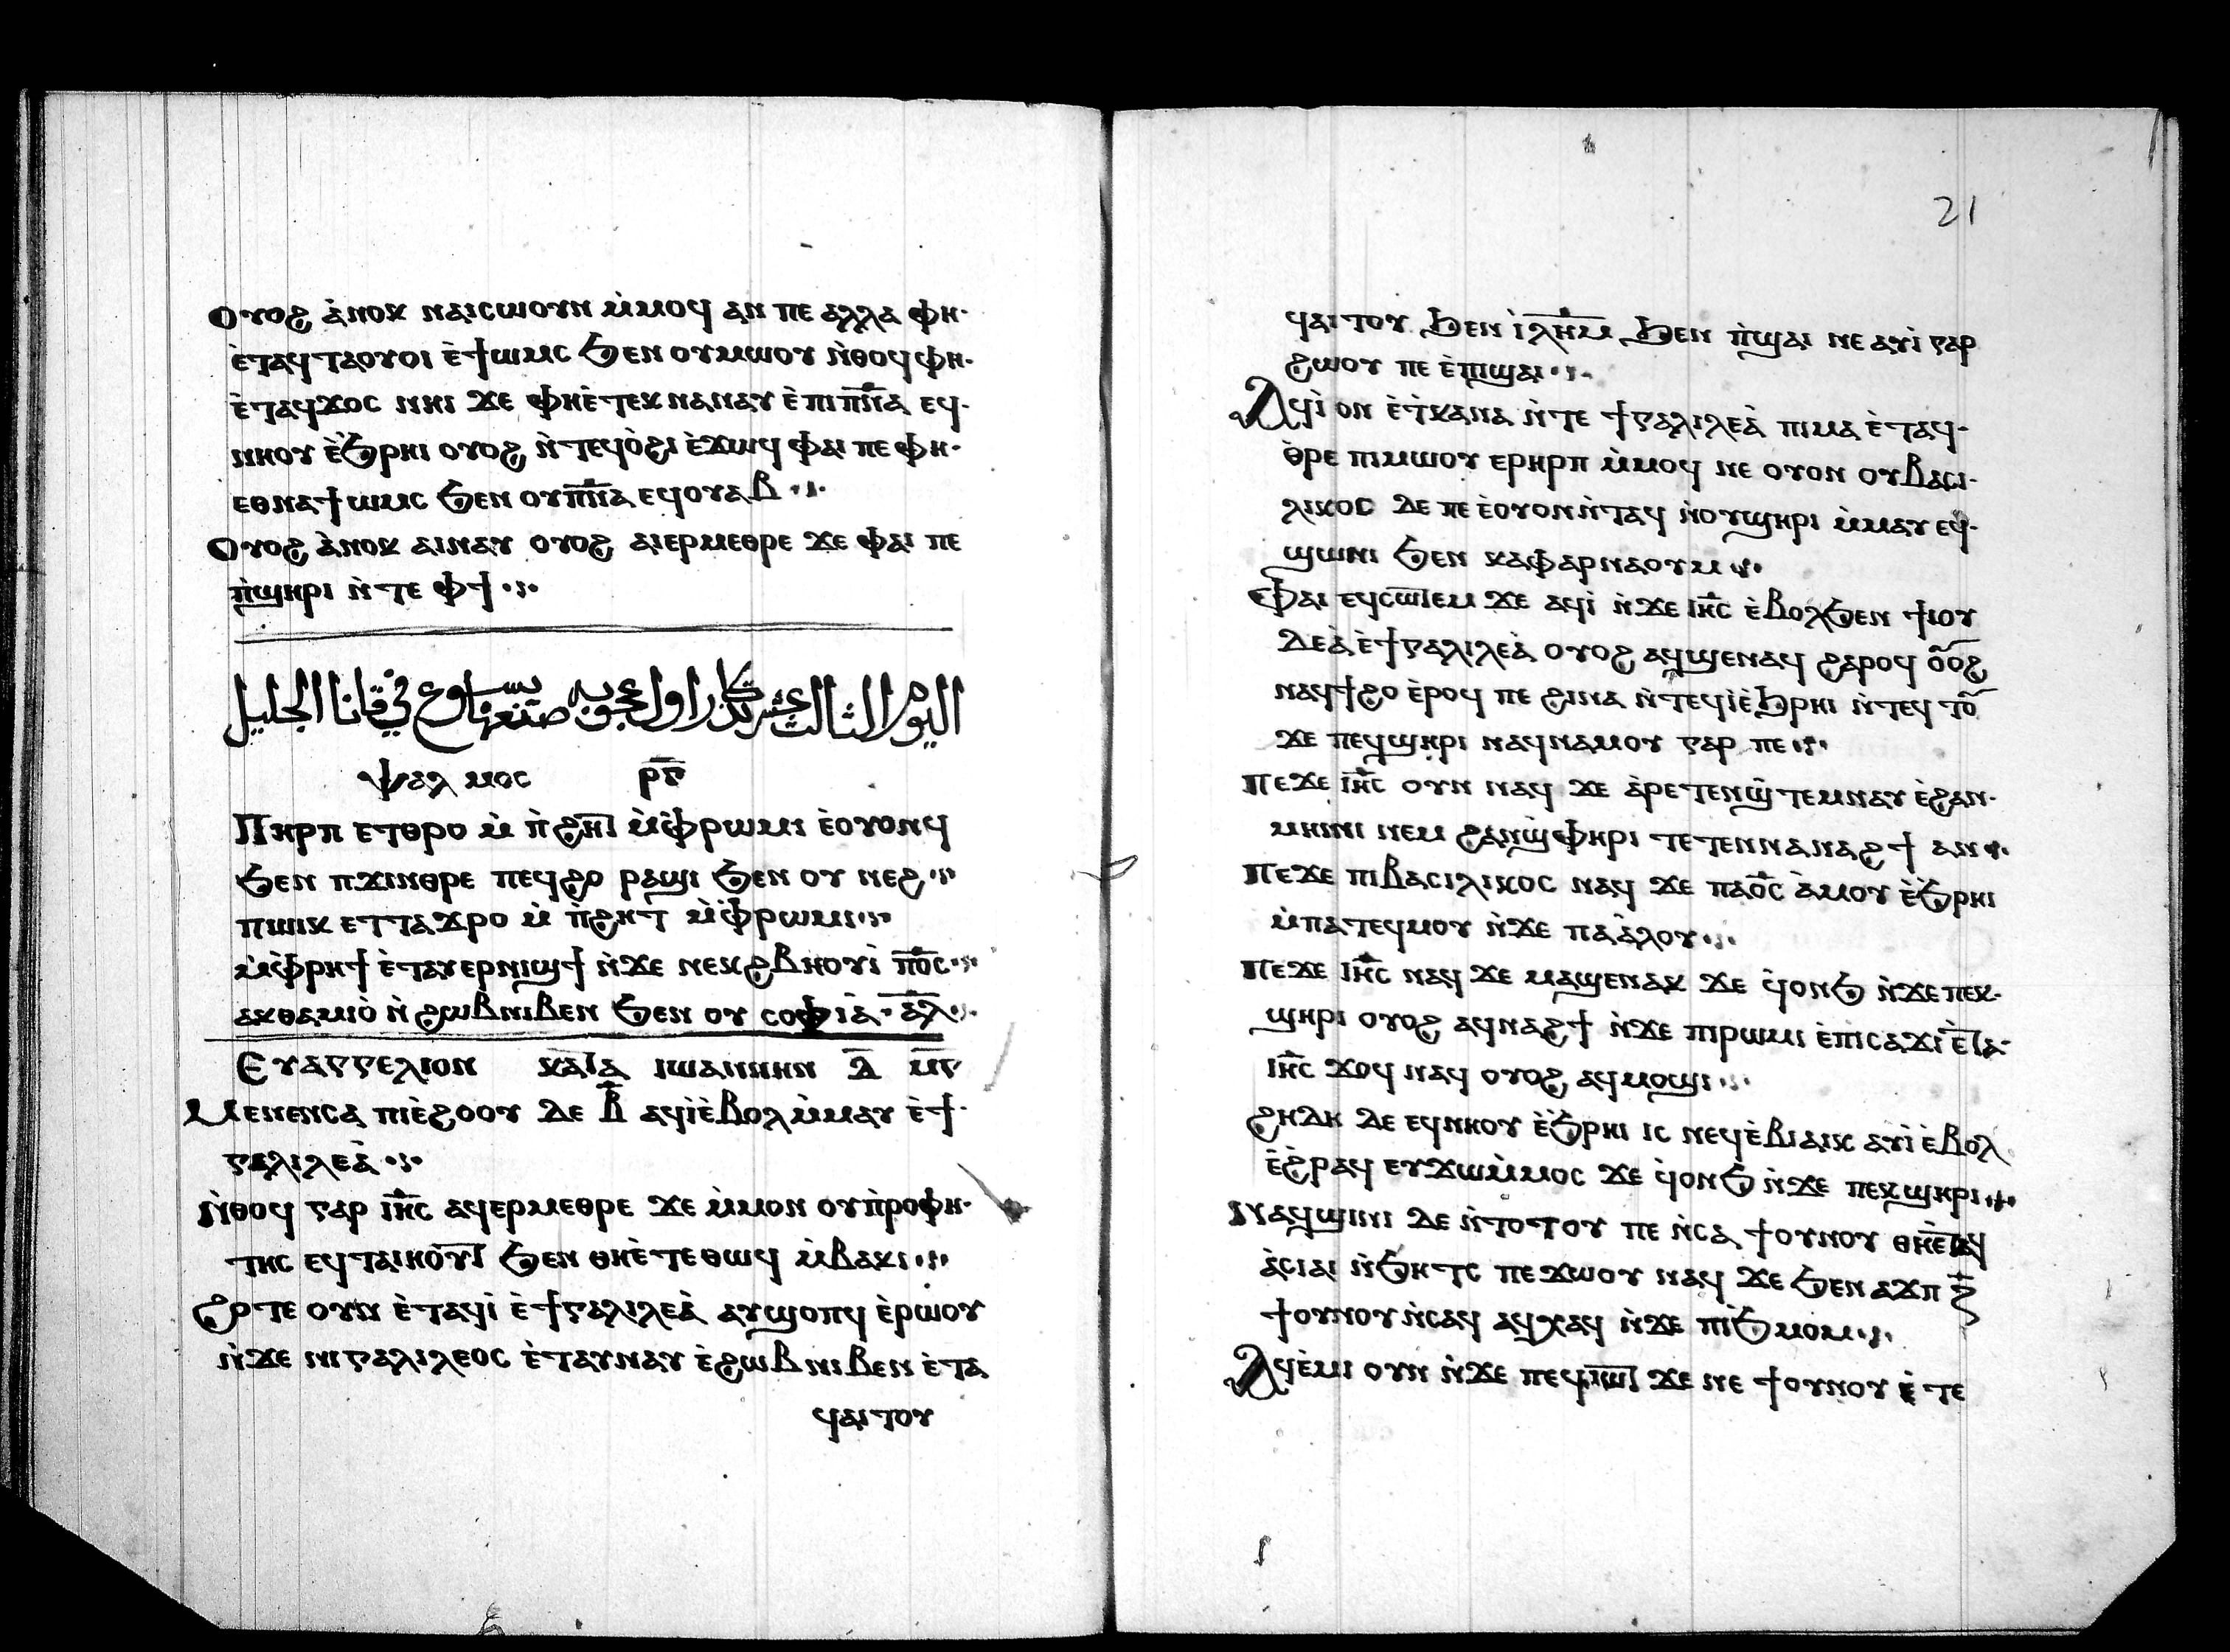 Ⲟⲩⲟϩ ⲁ̀ⲛⲟⲕ ⲛⲁⲓⲥⲱⲟⲩⲛ ⲙ̀ⲙⲟϥ ⲁⲛ ⲡⲉ ⲁⲗⲗⲁ ⲫⲏ·
ⲉ̀ⲧⲁϥⲧⲁⲟⲩⲟⲓ ⲉ̀ϯⲱⲙⲥ ϧⲉⲛ ⲟⲩⲙⲱⲟⲩ ⲛ̀ⲑⲟϥ ⲫⲏ·
ⲉ̀ⲧⲁϥϫⲟⲥ ⲛⲏⲓ ϫⲉ ⲫⲏⲉ̀ⲧⲉⲕ ⲛⲁⲛⲁⲩ ⲉ̀ⲡⲓⲡ̅ⲛ̅ⲁ ⲉϥ·
ⲛⲏⲟⲩ ⲉ̀ϧⲣⲏⲓ ⲟⲩⲟϩ ⲛ̀ⲧⲉϥⲟ̀ϩⲓ ⲉ̀ϫⲱϥ ⲫⲁⲓ ⲡⲉ ⲫⲏ·
ⲉⲑⲛⲁϯⲱⲙⲥ ϧⲉⲛ ⲟⲩⲡ̅ⲛ̅ⲁ ⲉϥⲟⲩⲁⲃ
Ⲟⲩⲟϩ ⲁ̀ⲛⲟⲕ ⲁⲓⲛⲁⲩ ⲟⲩⲟϩ ⲁⲓⲉⲣⲙⲉⲑⲣⲉ ϫⲉ ⲫⲁⲓ ⲡⲉ
ⲡ̀ϣⲏⲣⲓ ⲛ̀ⲧⲉ ⲫϯ
اليوم الثالث عشر تذكار اول عجوبه صنعها يسوع في قانا الجليل
ⲯⲁⲗⲙⲟⲥ ⲣ̅ⲅ̅
Ⲡⲏⲣⲡ ⲉⲧⲑⲣⲟ ⲙ̀ ⲡ̀ϩⲏⲧ ⲙ̀ⲫ̀ⲣⲱⲙⲓ ⲉ̀ⲟⲩⲟⲛϥ
ϧⲉⲛ ⲡϫⲓⲛⲑⲣⲉ ⲡⲉϥϩⲟ ⲣⲁϣⲓ ϧⲉⲛ ⲟⲩ ⲛⲉϩ
ⲡⲱⲓⲕ ⲉⲧⲧⲁϫⲣⲟ ⲙ̀ ⲡ̀ϩⲏⲧ ⲙ̀ⲫ̀ⲣⲱⲙⲓ
ⲙ̀ⲫ̀ⲣⲏϯ ⲉ̀ⲧⲁⲩⲉⲣⲛⲓϣϯ ⲛ̀ϫⲉ ⲛⲉⲕϩⲃⲏⲟⲩⲓ̀ ⲡ̅ⲟ̅ⲥ
ⲁⲕⲑⲁⲙⲓⲟ̀ ⲛ̀ ϩⲱⲃⲛⲓⲃⲉⲛ ϧⲉⲛ ⲟⲩ ⲥⲟⲫⲓⲁ̀· ⲁ̅ⲗ̅
Ⲉⲩⲁⲅⲅⲉⲗⲓⲟⲛ ⲕⲁⲧⲁ ⲓⲱⲁⲛⲛⲏⲛ ⲇ̅ ⲙ̅ⲅ̅
Ⲙⲉⲛⲉⲛⲥⲁ ⲡⲓⲉ̀ϩⲟⲟⲩ ⲇⲉ ⲃ̅ ⲁϥⲓ̀ⲉ̀ⲃⲟⲗ ⲙ̀ⲙⲁⲩ ⲉ̀ϯ·
ⲅⲁⲗⲓⲗⲉⲁ̀
Ⲛ̀ⲑⲟϥ ⲅⲁⲣ ⲓ̅ⲏ̅ⲥ ⲁϥⲉⲣⲙⲉⲑⲣⲉ ϫⲉ ⲙ̀ⲙⲟⲛ ⲟⲩⲡ̀ⲣⲟⲫⲏ·
ⲧⲏⲥ ⲉϥⲧⲁⲓⲏⲟⲩⲧ ϧⲉⲛ ⲑⲏⲉ̀ⲧⲉ ⲑⲱϥ ⲙ̀ⲃⲁⲕⲓ
Ϩⲟⲧⲉ ⲟⲩⲛ ⲉ̀ⲧⲁϥⲓ̀ ⲉ̀ϯⲅⲁⲗⲓⲗⲉⲁ̀ ⲁⲩϣⲟⲡϥ ⲉ̀ⲣⲱⲟⲩ
ⲛ̀ϫⲉ ⲛⲓⲅⲁⲗⲓⲗⲉⲟⲥ ⲉ̀ⲧⲁⲩⲛⲁⲩ ⲉ̀ϩⲱⲃ ⲛⲓⲃⲉⲛ ⲉ̀ⲧⲁ
ϥⲁⲓⲧⲟⲩ
21
ϥⲁⲓⲧⲟⲩ ϧⲉⲛ ⲓ̀ⲗ̅ⲏ̅ⲙ̅ ϧⲉⲛ ⲡ̀ϣⲁⲓ ⲛⲉ ⲁⲩⲓ̀ ⲅⲁⲣ
ϩⲱⲟⲩ ⲡⲉ ⲉ̀ⲡϣⲁⲓ
Ⲁϥⲓ̀ ⲟⲛ ⲉ̀ⲧ̀ⲕⲁⲛⲁ ⲛ̀ⲧⲉ ϯⲅⲁⲗⲓⲗⲉⲁ̀ ⲡⲓⲙⲁ ⲉ̀ⲧⲁϥ·
ⲑ̀ⲣⲉ ⲡⲓⲙⲱⲟⲩ ⲉⲣⲏⲣⲡ ⲙ̀ⲙⲟϥ ⲛⲉ ⲟⲩⲟⲛ ⲟⲩⲃⲁⲥⲓ·
ⲗⲓⲕⲟⲥ ⲇⲉ ⲡⲉ ⲉ̀ⲟⲩⲟⲛⲛ̀ⲧⲁϥ ⲛ̀ⲟⲩϣⲏⲣⲓ ⲙ̀ⲙⲁⲩ ⲉϥ·
ϣⲱⲛⲓ ϧⲉⲛ ⲕⲁⲫⲁⲣⲛⲁⲟⲩⲙ
Ⲫⲁⲓ ⲉϥⲥⲱⲧⲉⲙ ϫⲉ ⲁϥⲓ̀ ⲛ̀ϫⲉ ⲓ̅ⲏ̅ⲥ ⲉ̀ⲃⲟⲗϧⲉⲛ ϯⲓⲟⲩ
ⲇⲉⲁ̀ ⲉ̀ϯⲅⲁⲗⲓⲗⲉⲁ̀ ⲟⲩⲟϩ ⲁϥϣⲉⲛⲁϥ ϩⲁⲣⲟϥ ⲟ̅ⲟϩ
ⲛⲁϥϯϩⲟ ⲉ̀ⲣⲟϥ ⲡⲉ ϩⲓⲛⲁ ⲛ̀ⲧⲉϥⲓ̀ⲉ̀ϧⲣⲏⲓ ⲛ̀ⲧⲉϥ ⲧⲟ̅
ϫⲉ ⲡⲉϥϣⲏⲣⲓ ⲛⲁϥⲛⲁⲙⲟⲩ ⲅⲁⲣ ⲡⲉ
Ⲡⲉϫⲉ ⲓ̅ⲏ̅ⲥ ⲟⲩⲛ ⲛⲁϥ ϫⲉ ⲁ̀ⲣⲉⲧⲉⲛϣ̀ⲧⲉⲙⲛⲁⲩ ⲉ̀ϩⲁⲛ·
ⲙⲏⲓⲛⲓ ⲛⲉⲙ ϩⲁⲛϣ̀ⲫⲏⲣⲓ ⲧⲉⲧⲉⲛⲛⲁⲛⲁϩϯ ⲁⲛ
Ⲡⲉϫⲉ ⲡⲓⲃⲁⲥⲓⲗⲓⲕⲟⲥ ⲛⲁϥ ϫⲉ ⲡⲁⲟ̅ⲥ ⲁ̀ⲙⲟⲩ ⲉ̀ϧⲣⲏⲓ
ⲙ̀ⲡⲁⲧⲉϥⲙⲟⲩ ⲛ̀ϫⲉ ⲡⲁⲁ̀ⲗⲟⲩ
Ⲡⲉϫⲉ ⲓ̅ⲏ̅ⲥ ⲛⲁϥ ϫⲉ ⲙⲁϣⲉⲛⲁⲕ ϫⲉ ϥ̀ⲟⲛϧ ⲛ̀ϫⲉ ⲡⲉⲕ·
ϣⲏⲣⲓ ⲟⲩⲟϩ ⲁϥⲛⲁϩϯ ⲛ̀ϫⲉ ⲡⲓⲣⲱⲙⲓ ⲉ̀ⲡⲓⲥⲁϫⲓ ⲉ̀ⲧⲁ·
ⲓ̅ⲏ̅ⲥ ϫⲟϥ ⲛⲁϥ ⲟⲩⲟϩ ⲁϥⲙⲟϣⲓ
ϩⲏⲇⲏ ⲇⲉ ⲉϥⲛⲏⲟⲩ ⲉ̀ϧⲣⲏⲓ ⲓⲥ ⲛⲉϥⲉ̀ⲃⲓⲁⲓⲕ ⲁⲩⲓ̀ ⲉ̀ⲃⲟⲗ
ⲉ̀ϩ̀ⲣⲁϥ ⲉⲩϫⲱⲙ̀ⲙⲟⲥ ϫⲉ ϥ̀ⲟⲛϧ ⲛ̀ϫⲉ ⲡⲉⲕϣⲏⲣⲓ
Ⲛⲁϥϣⲓⲛⲓ ⲇⲉ ⲛ̀ⲧⲟⲧⲟⲩ ⲡⲉ ⲛ̀ⲥⲁ ϯⲟⲩⲛⲟⲩ ⲑⲏⲉ̀ⲧⲁϥ
ⲁ̀ⲥⲓⲁⲓ ⲛ̀ϧⲏⲧⲥ ⲡⲉϫⲱⲟⲩ ⲛⲁϥ ϫⲉ ϧⲉⲛ ⲁϫⲡ ⲍ̅
ϯⲟⲩⲛⲟⲩ ⲛ̀ⲥⲁϥ ⲁϥⲭⲁϥ ⲛ̀ϫⲉ ⲡⲓϧ̀ⲙⲟⲙ
Ⲁϥⲉ̀ⲙⲓ ⲟⲩⲛ ⲛ̀ϫⲉ ⲡⲉϥⲓⲱⲧ ϫⲉ ⲛⲉ ϯⲟⲩⲛⲟⲩ ⲉ̀ⲧⲉ